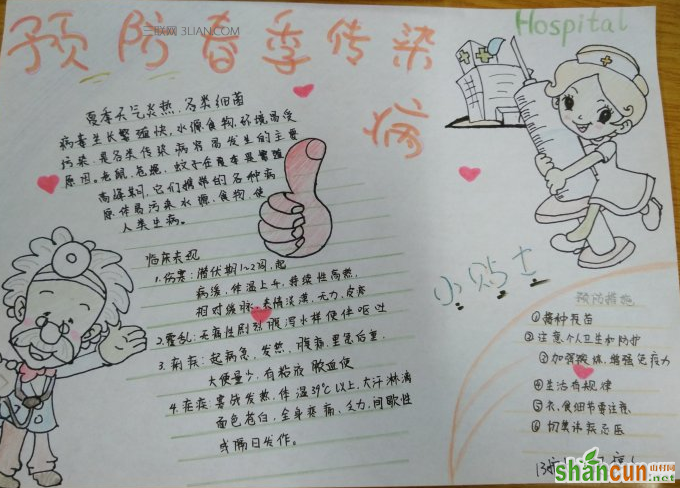 三联网 3LIAN.COM
预防春季传染
病
Hospital
夏季天气炎热,各类细菌
病毒生长繁殖快,水源食物,环境易受
污染,是各类传染病容易发生的主要
原因。老鼠,苍蝇,蚊子在夏季是繁殖
高峰期,它们携带的各种病
原体易污染水源,食物,使
人类生病。
临床表现
1.伤寒:潜伏期1~2周,起
病缓,体温上升,持续性高热,
相对缓脉,表情淡漠,无力,皮疹
2.霍乱:无痛性剧烈腹泻水样便伴呕吐
3.痢疾:起病急,发热,腹痛,里急后重,
大便量少,有粘液脓血便
4.疟疾:寒战发热,体温39℃以上,大汗淋漓
面色苍白,全身疼痛,乏力,间歇性
或隔日发作。
小贴士
预防措施
①接种疫苗
②注意个人卫生和防护
③加强锻炼,增强免疫力
④生活有规律
⑤衣,食细节要注意
⑥切莫讳疾忌医
shancun
山村网
.net